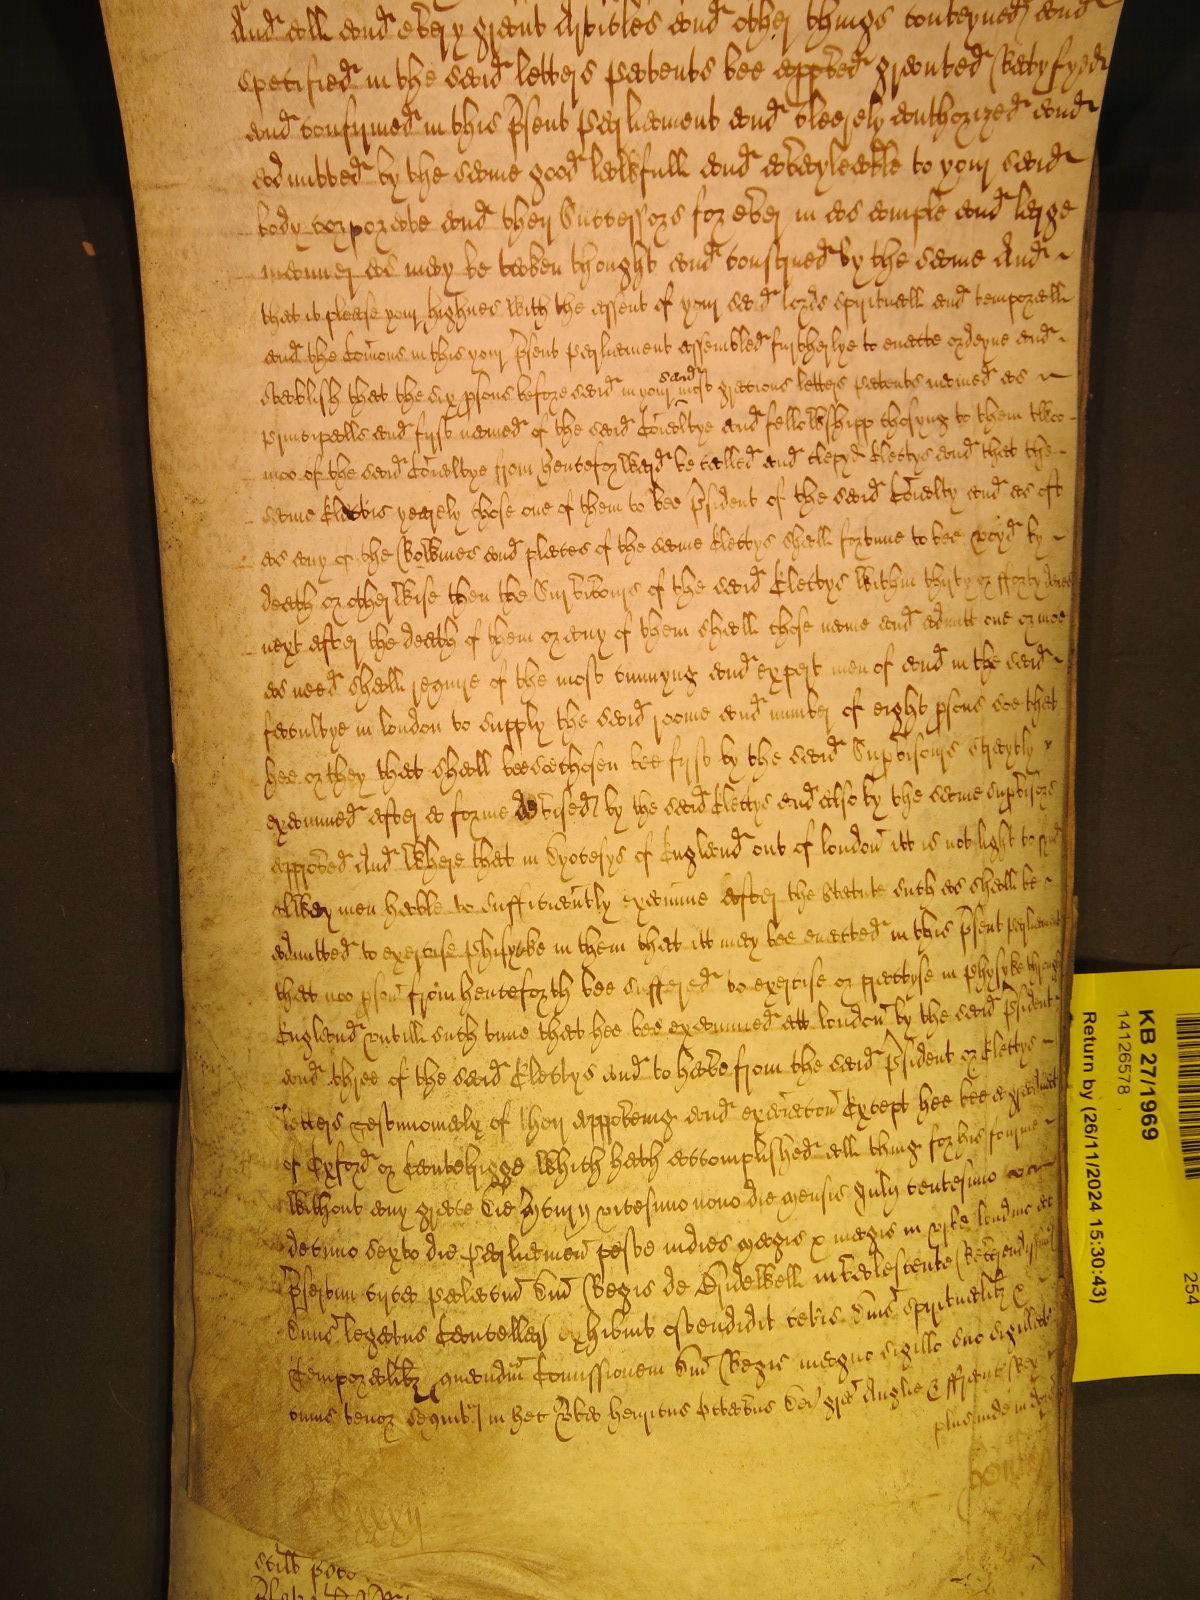 And all and every graunt Articles and other things conteyned and
specified in the said letters patents bee appved graunted Ratyfyed
and confirmed in this psent parliament and cleerely authorized and
admitted by the same good lawfull and avayleable to your said
body corporate and their Successors for ever in as ample and large
manner as may be taken thought and construed by the same And
that it please your highnes with the assent of your said lords spirituall and temporall
and the Comons in this your psent parliament assembled furtherlye to enacte ordeyne and
stablish that the six psons before said in your said most gracious letters patents named as
principalls and first named of the said Comaltye and fellowshipp chosyng to them twoo
moo of the said Comaltye from henceforward be called and cleped Electys and that the
same Electis yearely chose one of them to bee psident of the said Comalty and as oft
as any of the Rowmes and places of the same Electys shall fortune to bee voyd by
death or otherwise then the Survivours of the said Electys within thirty or fforty daies
next after the death of them or any of them shall chose name and admitt one or moe
as need shall require of the most cunnyng and expert men of and in the said
facultye in london to supply the said roome and number of eight psons soe that
hee or they that shall bee soe chosen bee first by the said Supvisours straytly
examined after a forme devised by the said Electys and also by the same supvisors
approved And where that in Dyocesys of England out of london itt is not light to fynd
alway men hable to sufficiently examine after the Statute such as shall be
admitted to exercise phisyke in them that itt may bee enacted in this psent parliament
that noo pson from henceforth bee suffered to exercise or practyse in Physyke through
England untill such time that hee bee examined att london by the said psident
and three of the said Electys and to have from the said psident or Electys
letters testimonialx of their approveing and examacon Except hee bee a graduat
of Oxford or Cantebrigge which hath accomplished all thing for his fourme
without any grace Die vicesimo nono die mensis July centesimo
decimo sexto die parliament peste indies magis x magis in urbe london ac
psertim circa palacium Dni Regis de Bridewell invalescente Reverendissimus
Dnus legatus Cancellar exhibuit ostendidit ceteris Dnis spiritualibz x
Temporalibz quandm Comissionem Dni Regis magno sigillo suo sigillat
cuius tenor sequitr in hec vba henricus Octavus Dei gra Anglie & ffrancie Rex
plus inde in dorso